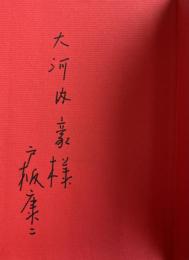 大河内豪様
戸板康二